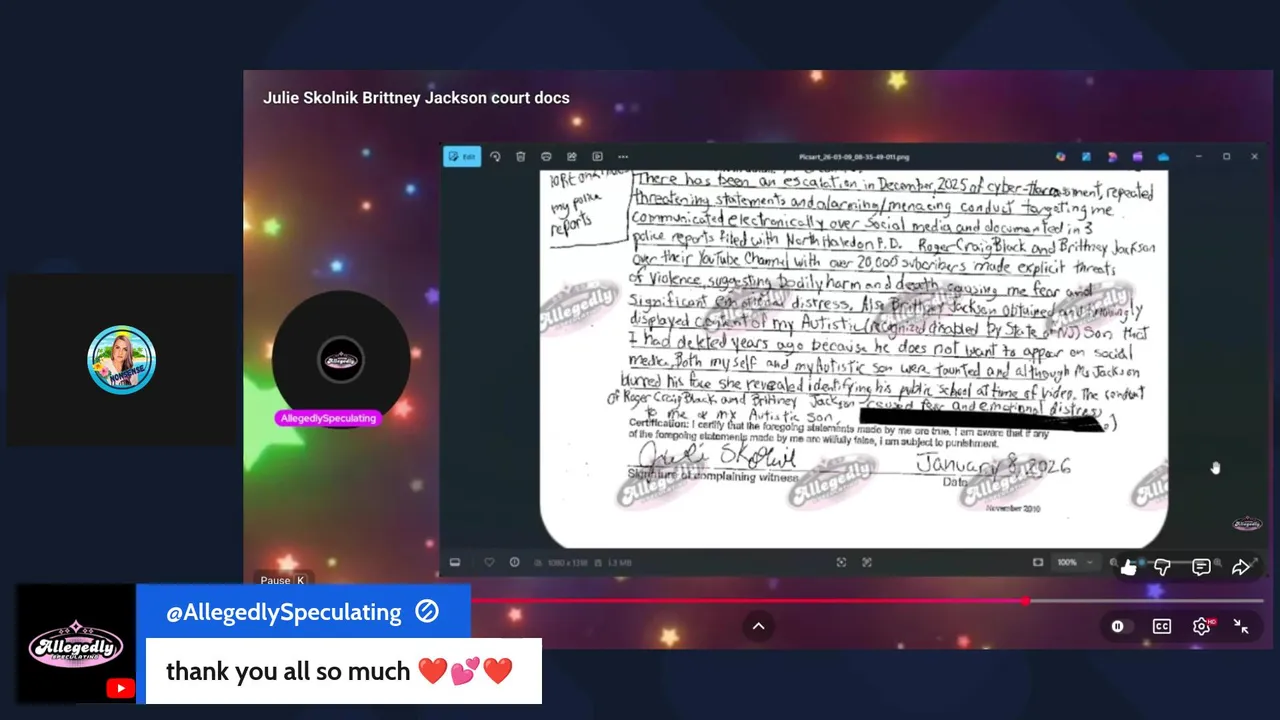 Julie Skolnik Brittney Jackson court docs
Edit
Picsart_26-03-09_08-35-49-011.png
my police
reports
There has been an escalation in December, 2025 of cyber-harassment, repeated
threatening statements and alarming/menacing conduct targeting me
communicated electronically over social media and documented in 3
police reports filed with North Haledon P.D. Roger Craig Black and Brittney Jackson
over their YouTube Channel with over 20,000 subcribers made explicit threats
of violence, suggesting bodily harm and death causing me fear and
significant emotional distress. Also Brittney Jackson obtained and knowingly
displayed content of my Autistic (recognized disabled by State of NJ) Son that
I had deleted years ago because he does not want to appear on social
media. Both my self and my Autistic son were taunted and although Ms Jackson
blurred his face she revealed identifying his public school at time of video. The conduct
of Roger Craig Black and Brittney Jackson caused fear and emotional distress
to me & my Autistic son.
Certification: I certify that the foregoing statements made by me are true. I am aware that if any
of the foregoing statements made by me are willfully false, I am subject to punishment.
Juli Skolnik
January 8, 2026
Signature of complaining witness
Date
November 2010
Allegedly
Allegedly
Allegedly
Allegedly
NONSENSE
AllegedlySpeculating
1080 x 1318
1.3 MB
100%
Pause K
CC
HD
@AllegedlySpeculating
Allegedly
SPECULATING
thank you all so much ❤️💕❤️